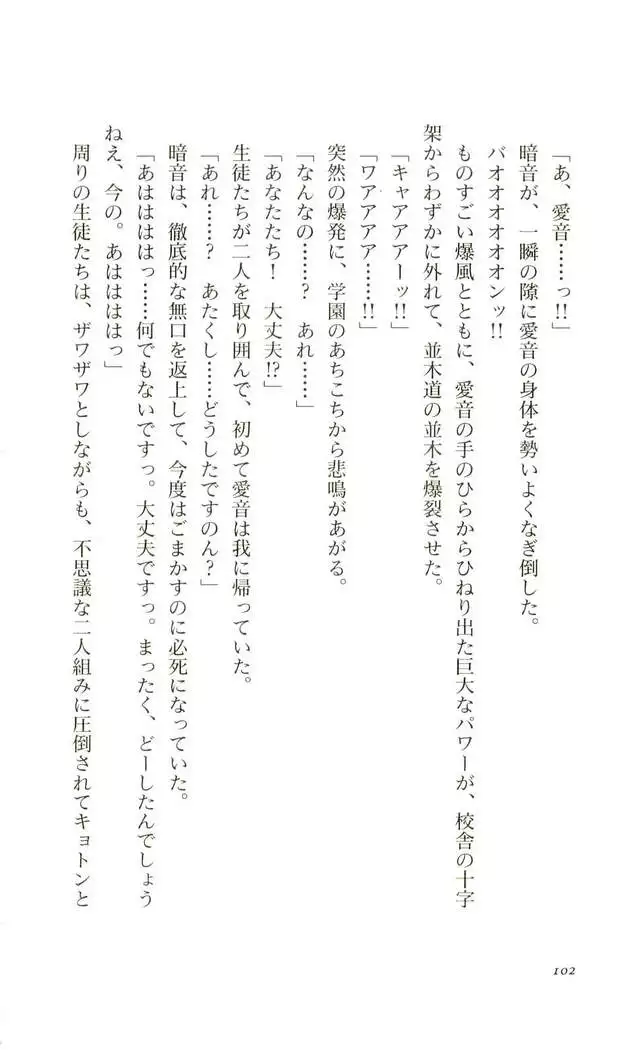 「あ、愛音……っ!!」
暗音が、一瞬の隙に愛音の身体を勢いよくなぎ倒した。
バオオオオオオンッ!!
ものすごい爆風とともに、愛音の手のひらからひねり出た巨大なパワーが、校舎の十字
架からわずかに外れて、並木道の並木を爆裂させた。
「キャアアアーッ!!」
「ワアアアア……!!」
突然の爆発に、学園のあちこちから悲鳴があがる。
「なんなの……? あれ……」
「あなたたち! 大丈夫!?」
生徒たちが二人を取り囲んで、初めて愛音は我に帰っていた。
「あれ……? あたくし……どうしたですのん?」
暗音は、徹底的な無口を返上して、今度はごまかすのに必死になっていた。
「あははははっ……何でもないですっ。大丈夫ですっ。まったく、どーしたんでしょう
ねえ、今の。あははははっ」
周りの生徒たちは、ザワザワとしながらも、不思議な二人組みに圧倒されてキョトンと
102